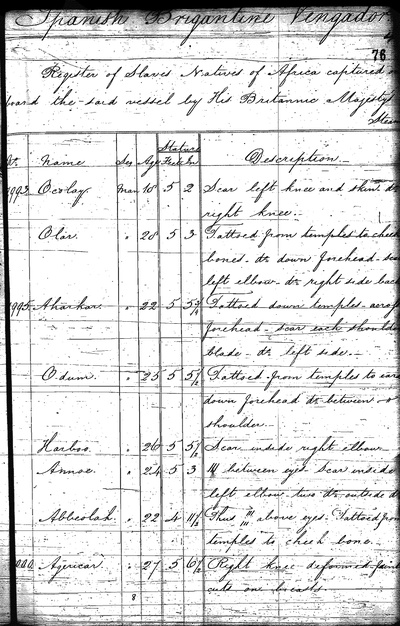 Spanish Brigantine Vengador
76
Register of Slaves Natives of Africa captured
board the said vessel by His Britannic Majesty's
Steam
No. Name Sex Age Stature Feet In Description
Ocolay Man 18 5 2 Scar left knee and shin do
right knee.
Olar. " 28 5 3 Tattoed from temples to cheek
bones. do down forehead. scar
left elbow. do right side back
Aharkar. " 22 5 Tattoed down temples across
forehead. scar each shoulder
blade do left side.
Odum. " 25 5 5½ Tattoed from temples to ears
down forehead do between
shoulder.
Harboo " 26 5 5½ Scar inside right elbow
Annoe. " 24 5 3 between eyes Scar inside
left elbow two do outside do
Abbeolah. " 22 4 11½ Thus above eyes. Tattoed from
temples to cheek bone.
Ajericar. " 27 5 6½ Right knee deformed. faint
cuts on breasts.